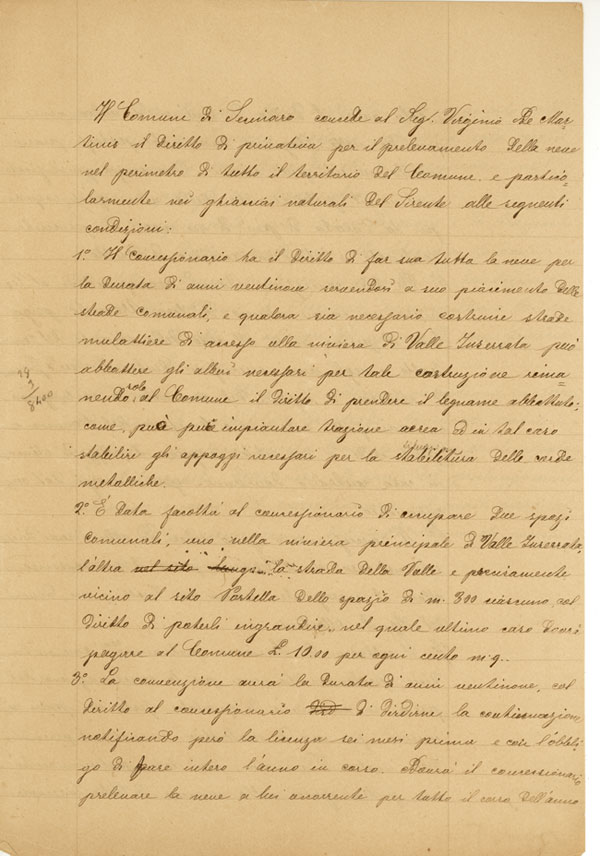 Il Comune di Secinaro concede al Sig. Virginio De Mar-
tinis il diritto di privativa per il prelevamento della neve
nel perimetro di tutto il territorio del Comune e partico-
larmente nei ghiacciai naturali del Sirente alle seguenti
condizioni:
1.° Il concessionario ha il diritto di far sua tutta la neve per
la durata di anni ventinove servendosi a suo piacimento delle
strade comunali, e qualora sia necessario costruire strade
mulattiere di accesso alla niviera di Valle Inserrata può
abbattere gli alberi necessari per tale costruzione rima-
nendo solo al Comune il diritto di prendere il legname abbattuto;
come, può può impiantare trazione aerea ed in tal caso
stabilire gli appoggi necessari per la stabilitura delle corde
metalliche.
2.° È data facoltà al concessionario di occupare due spazi
comunali, uno nella niviera principale di Valle Inserrata,
l'altra nel sito lungo la strada della Valle e precisamente
vicino al sito Portella dello spazio di m. 300 ciascuno col
diritto di poterli ingrandire, nel quale ultimo caso dovrà
pagare al Comune £. 10.00 per ogni cento m.q..
3.° La convenzione avrà la durata di anni ventinove, col
diritto al concessionario di disdirne la continuazione
notificando però la licenza sei mesi prima e con l'obbli-
go di pagare intero l'anno in corso. Dovrà il concessionario
prelevare la neve a lui occorrente per tutto il corso dell'anno